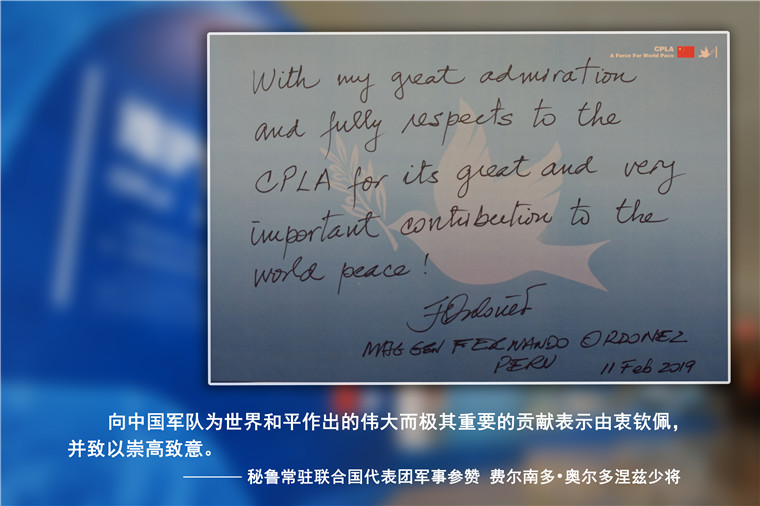 CPLA
A Force For World Peace
With my great admiration
and fully respects to the
CPLA for its great and very
important contribution to the
world peace!
FOrdoñez
MAJ GEN FERNANDO ORDONEZ
PERU
11 Feb 2019
向中国军队为世界和平作出的伟大而极其重要的贡献表示由衷钦佩，
并致以崇高致意。
——— 秘鲁常驻联合国代表团军事参赞 费尔南多·奥尔多涅兹少将